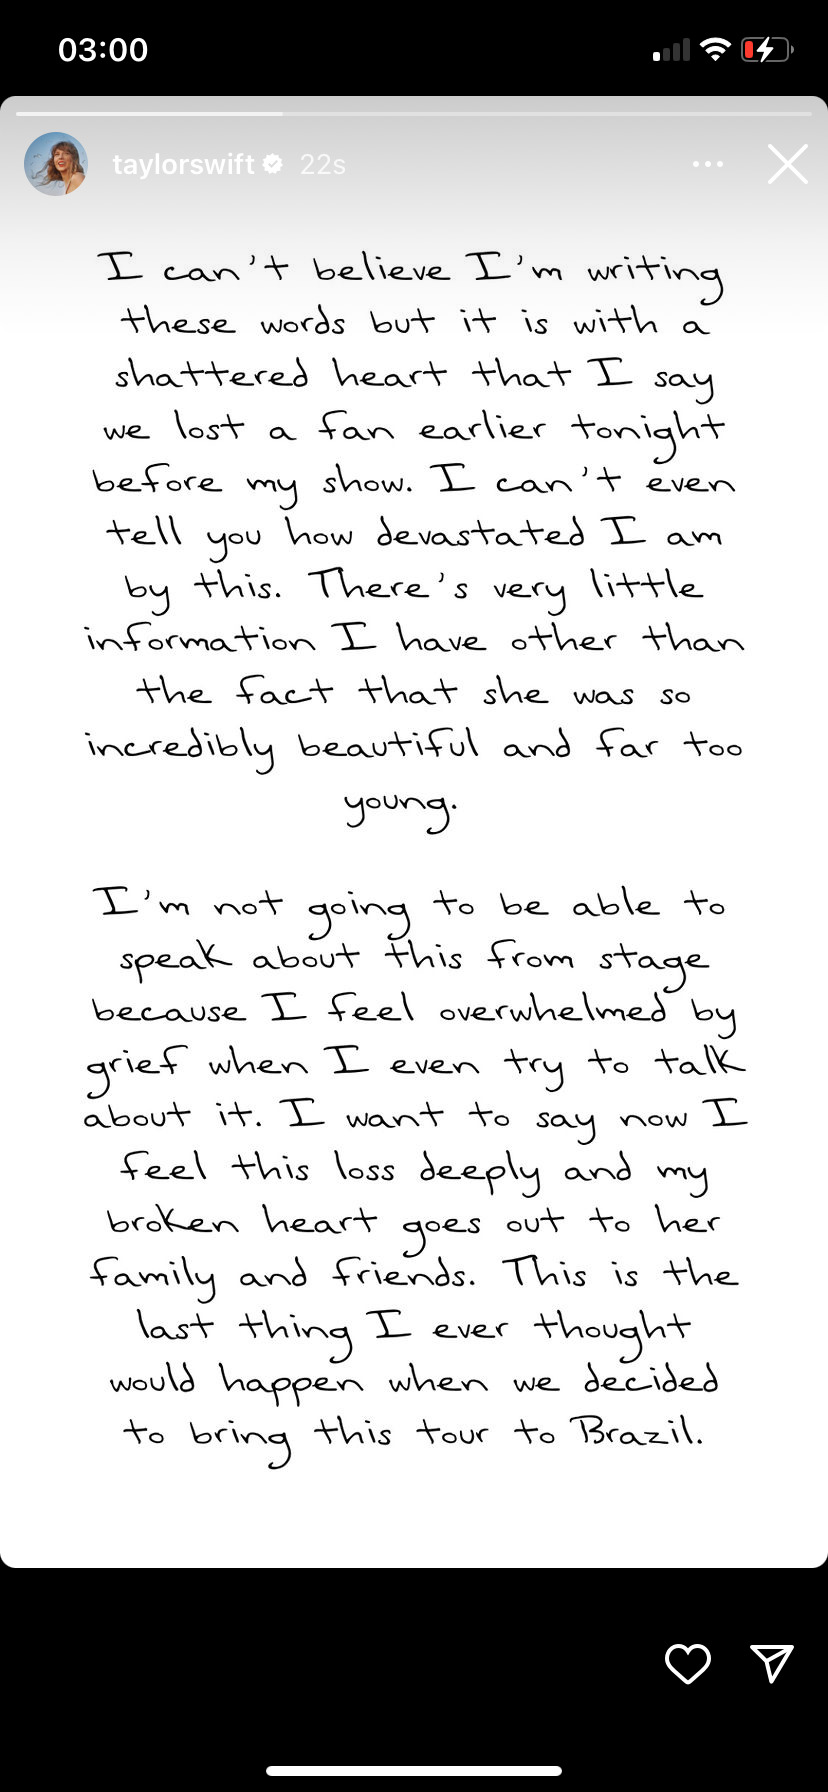 03:00
taylorswift 22s
I can't believe I'm writing
these words but it is with a
shattered heart that I say
we lost a fan earlier tonight
before my show. I can't even
tell you how devastated I am
by this. There's very little
information I have other than
the fact that she was so
incredibly beautiful and far too
young.
I'm not going to be able to
speak about this from stage
because I feel overwhelmed by
grief when I even try to talk
about it. I want to say now I
feel this loss deeply and my
broken heart goes out to her
family and friends. This is the
last thing I ever thought
would happen when we decided
to bring this tour to Brazil.